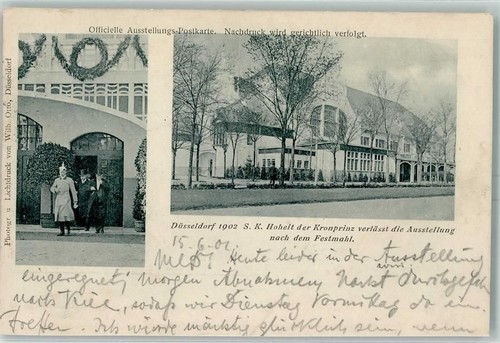 Officielle Ausstellungs-Postkarte. Nachdruck wird gerichtlich verfolgt.
Photogr. u. Lichtdruck von Wilh. Otto, Düsseldorf
Düsseldorf 1902 S. K. Hoheit der Kronprinz verlässt die Ausstellung
nach dem Festmahl.
15.6.02. Heute leider in der Ausstellung
eingeregnet; morgen Abnahme,
nach Kiel, sodaß wir Dienstag Vormittag da ein-
treffen. Ich würde mächtig glücklich sein, wenn